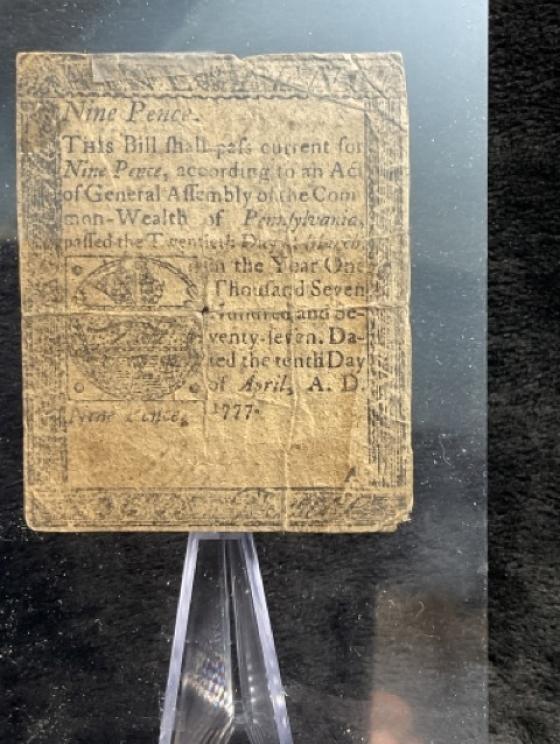 Nine Pence.
THIS Bill shall pass current for
Nine Pence, according to an Act
of General Assembly of the Com
mon-Wealth of Pennsylvania,
passed the Twentieth Day of March
in the Year One
Thousand Seven
Hundred and Se-
venty-seven. Da-
ted the tenth Day
of April, A. D.
1777.
Nine Pence,